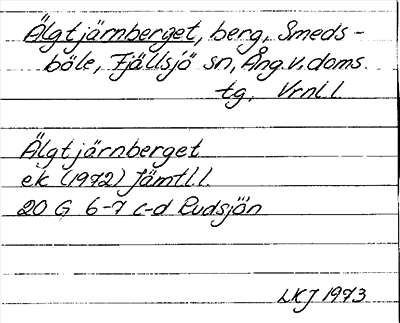 Älgtjärnberget, berg, Smeds-
böle, Fjällsjö sn, Ång.v.doms.
tg, Vrnl.l.
Älgtjärnberget
ek (1972) Jämtl.l.
20 G 6-7 c-d Rudsjön
LKJ 1973